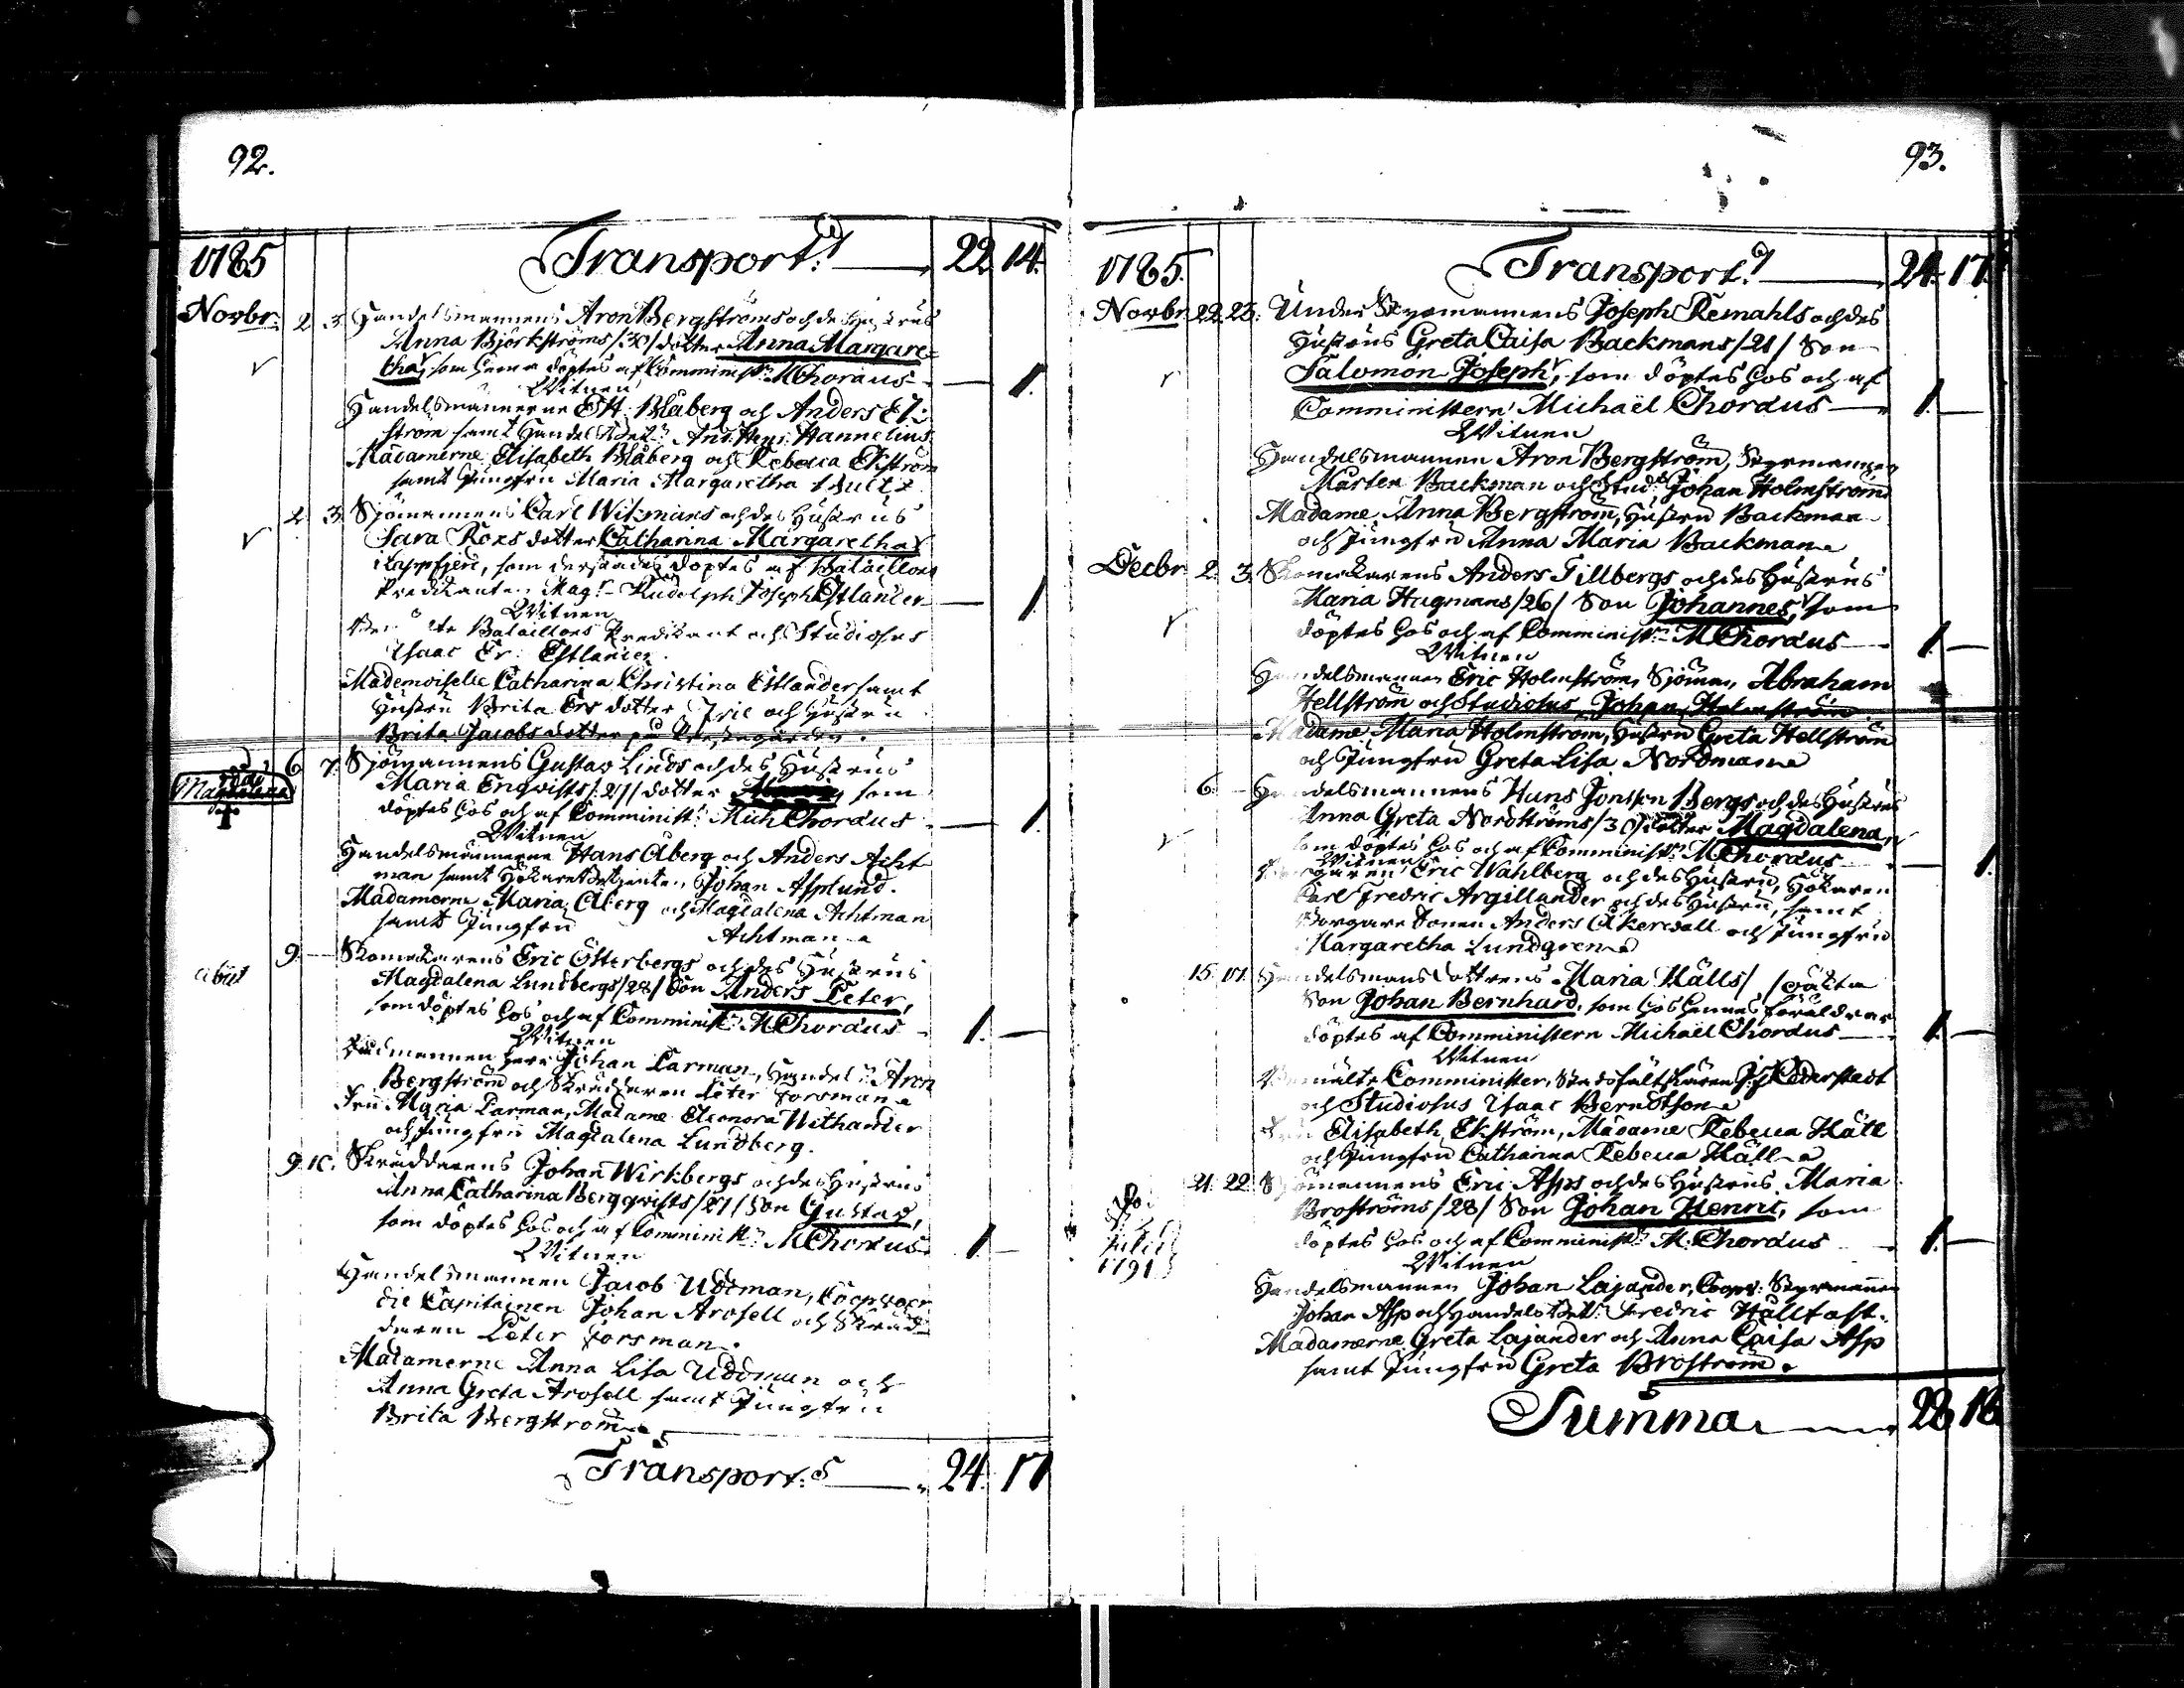 92.
1785 Transport 22 14.
Novbr. 2 3 Handelsmannens Aron Bergströms och des Hustrus
Anna Björkströms /30/ dotter Anna Margare=
tha, som hema döptes af Comminist: M Choræus — 1.
Witnen
Handelsmännerne Ell: Blåberg och Anders Ek=
ström samt Handels Hannelius
Madamerne Elisabeth Blåberg och Rebecca Ekström
samt Jungfru Maria Margaretha
2. 3. Sjömannens Carl Wikmans och des Hustrus
Sara dotter Catharina Margaretha
som derstädes döptes af Bataillons
Predikanten Mag: Rudolph Joseph Estlander — 1
Witnen
Bataillons Predikant och Studiosus
Isaac Er: Estlander.
Mademoiselle Catharina Christina Estlander samt
Hustru Brita Ers dotter och Hustru
Brita Jacobs dotter på
Magdalena
6 7. Sjömannens Gustav Linds och des Hustrus
Maria Enqvists /27/ dotter som
döptes hos och af Comminist: Mich Choræus — 1.
Witnen
Handelsmännerne Hans Åberg och Anders Acht
man samt Johan Asplund.
Madamerne Maria Åberg och Magdalena Achtman
samt Jungfru
Achtman
9. — Skomakarens Eric Österbergs och des Hustrus
Magdalena Lundbergs /28/ Son Anders Peter,
som döptes hos och af Comminist: M Choræus 1. —
Witnen
Rådmannen Herr Johan Parman, Handels: Aron
Bergström och Skräddaren Peter Forsman
Fru Maria Parman, Madame Eleonora Withander
och Jungfru Magdalena Lundberg.
9. 10. Skräddarens Johan Wirkbergs och des Hustrus
Anna Catharina Bergqvists /27/ Son Gustav,
som döptes hos och af Comminist: M Choræus 1 —
Witnen
Handelsmannen Jacob Uddman, Coopvaer
die Capitainen Johan Arosell och Skräd=
daren Peter Forsman.
Madamerne Anna Lisa Uddman och
Anna Greta Arosell samt Jungfru
Brita Bergström
Transport: 24. 17
93.
1785. Transport 24. 17.
Novbr 22 23. Under Styrmannens Joseph Remahls och des
Hustrus Greta Caisa Backmans /21/ Son
Salomon Joseph, som döptes hos och af
Comministern Michaël Choræus — 1. —
Witnen
Handelsmannen Aron Bergström, Styrmannen
Mårten Backman och Stud: Johan Holmström
Madame Anna Bergström, Hustru Backman
och Jungfru Anna Maria Backman
Decbr 2. 3. Skomakarens Anders Tillbergs och des Hustrus
Maria Hagmans /26/ Son Johannes, som
döptes hos och af Comminist: M Choræus — 1. —
Witnen
Handelsmannen Eric Holmström, Sjöman Abraham
Hellström och Studiosus Johan Holmström
Madame Maria Holmström, Hustru Greta Hellström
och Jungfru Greta Lisa Nordman
6. — Handelsmannens Hans Jonsson Bergs och des Hustrus
Anna Greta Nordströms /30/ dotter Magdalena,
som döptes hos och af Comminist: M Choræus — 1.
Witnen
Eric Wahlberg och des Hustru, Hökaren
Carl Fredric Argillander och des Hustru, samt
Borgare Sonen Anders Åkerwall och Jungfru
Margaretha Lundgren
15. 17. Handelsmans dottrens Maria Hälls / / oäkta
Son Johan Bernhard, som hos hennes Föräldrar
döptes af Comministern Michaël Choræus — 1. —
Witnen
Comminister,
och Studiosus Isaac Berndtson
Elisabeth Ekström, Madame Rebecca Häll
och Jungfru Catharina Rebecca Häll
21. 22. Sjömannens Eric Asps och des Hustrus Maria
Broströms /28/ Son Johan Henric, som
döptes hos och af Comminist: M. Choræus — 1. —
1791
Witnen
Handelsmannen Johan Lajander, Coopv: Styrmannen
Johan Asp och Handels Fredric Hällfast.
Madamerne Greta Lajander och Anna Caisa Asp
samt Jungfru Greta Broström.
Summa 28 18